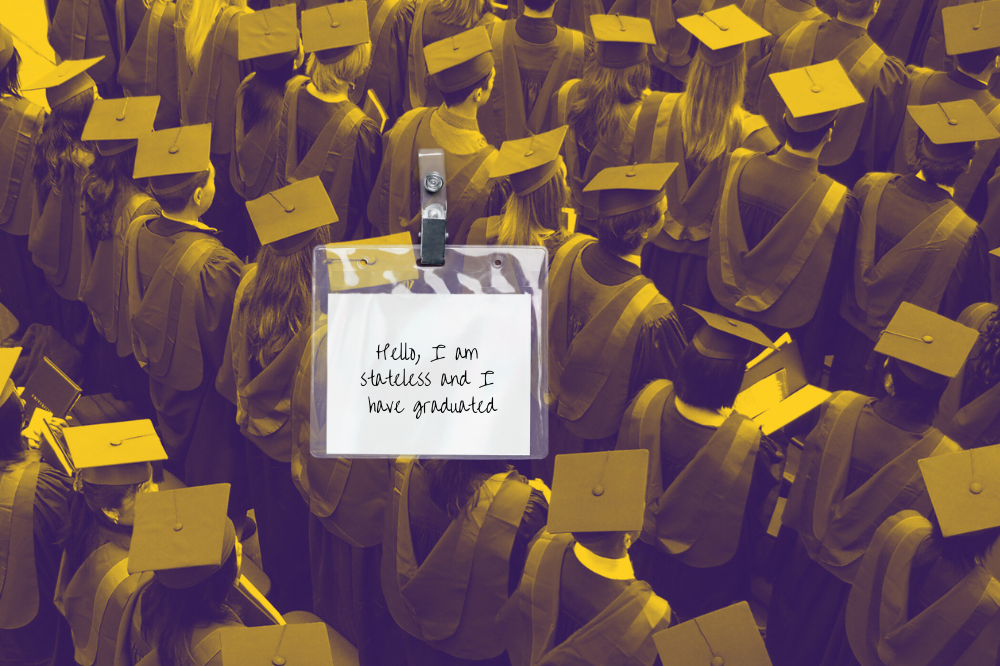 Hello, I am
stateless and I
have graduated